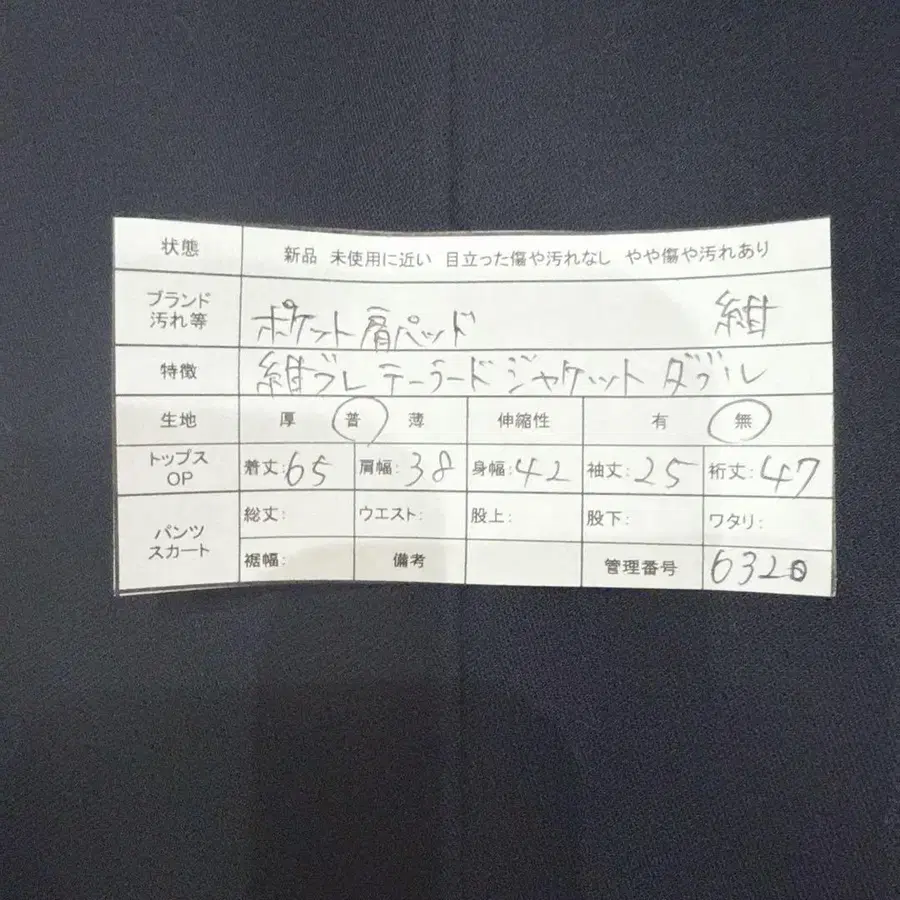 状態 新品 未使用に近い 目立った傷や汚れなし やや傷や汚れあり
ブランド
汚れ等 ポケット肩パッド 紺
特徴 紺ブレ テーラードジャケット ダブル
生地 厚 普 薄 伸縮性 有 無
トップス
OP 着丈:65 肩幅:38 身幅:42 袖丈:25 裄丈:47
パンツ
スカート 総丈: ウエスト: 股上: 股下: ワタリ:
裾幅: 備考 管理番号 6320